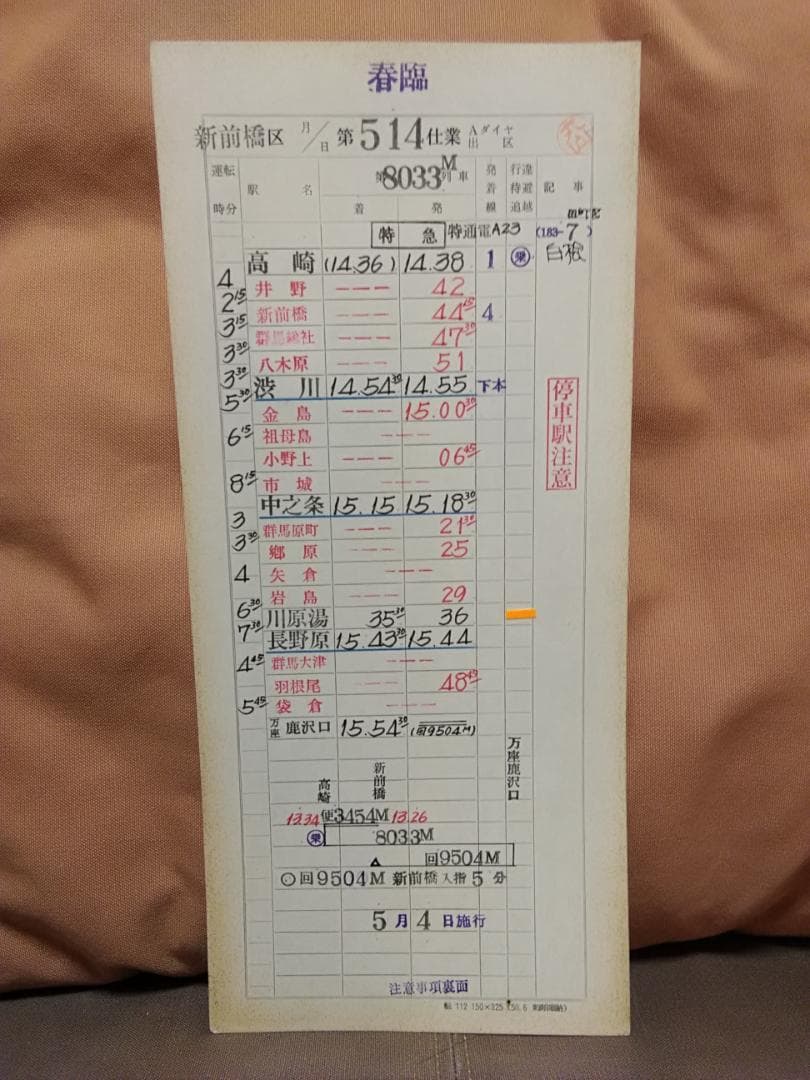 春臨
新前橋区 月/日 第514仕業 Aダイヤ 出区
運転時分 駅名 第8033M列車 着 発 発着線 行違待避追越 記事
特急 特通電A23 (183-7)
4 高崎 (14.36) 14.38 1 乗 白根
2 15 井野 --- 42
3 15 新前橋 --- 44 15 4
3 30 群馬総社 --- 47 30
3 30 八木原 --- 51
5 30 渋川 14.54 30 14.55 下本
金島 --- 15.00 30
6 15 祖母島 ---
小野上 --- 06 45
8 15 市城 ---
中之条 15.15 15.18 30
3 群馬原町 --- 21 30
3 30 郷原 --- 25
4 矢倉 ---
岩島 --- 29
6 30 川原湯 35 30 36
7 30 長野原 15.43 30 15.44
4 45 群馬大津 ---
羽根尾 --- 48 45
5 45 袋倉 ---
万座鹿沢口 15.54 30 (回9504M)
停車駅注意
高崎 新前橋 万座鹿沢口
13.34 便3454M 13.26
乗 8033M
回9504M
○回9504M 新前橋入指5分
5月4日施行
注意事項裏面
転 112 150×325 (50.6